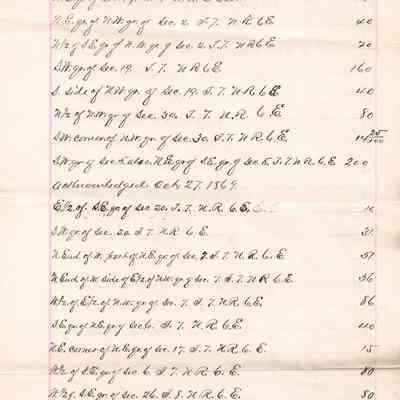 N.E. qr. of N.W. qr. of Sec. 2. T. 7. N R 6 E 40
W/2 of S.E. qr. of N.W. qr. of Sec. 2. T. 7. N R 6 E. 20
S.W. qr. of Sec. 19. T. 7. N R 6 E 160
S. side of N.W. qr. of Sec. 19. T. 7. N R 6 E. 40
W/2 of N.W. qr. of Sec. 30. T. 7. N. R. 6 E. 80
S.W. corner of N.W. qr. of Sec. 30. T. 7. N. R. 6 E. 14 25/100
S.W. qr. of Sec. 4. also N.E. qr. of S.E. qr. of Sec. 5. T. 7. N R 6 E 200
Acknowledged Oct. 27, 1869.
E/2 of S.E. qr. of Sec. 20. T. 7. N. R. 6 E.
S.W. qr. of Sec. 20 T. 7. N R. 6 E. 31
N. End of W. part of N.E. qr. of Sec. 7. T. 7. N R. 6. E 51
N. End of W. side of E/2 of N.W. qr. of Sec. 7. T. 7. N R 6 E. 36
W/2 of E/2 of N.W. qr. of Sec. 7. T. 7. N R 6 E. 86
S.E. qr. of N.E. qr. of Sec. 6. T. 7. N R. 6 E. 40
N.E. corner of N.E. qr. of Sec. 17. T. 7. N R. 6 E. 15
W/2 of S.E. qr. of Sec. 6. T. 7. N R. 6. E. 80
W/2 of S.E. qr. of Sec. 26. T. 8. N R. 6 E. 80